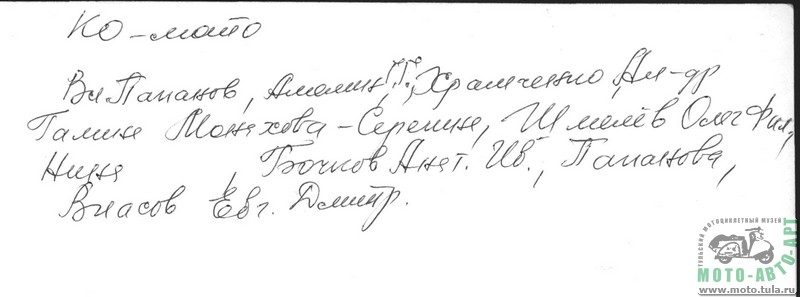 КО-мото
Вл Папанов, Амелин, Г.Г., Храмченко, Ал-др
Галина Монахова-Серегина, Шмелёв Олег Фил,
Нина, Бочков Анат. Ив., Папанова,
Власов Евг. Дмитр.
ТУЛЬСКИЙ МОТОЦИКЛЕТНЫЙ МУЗЕЙ
МОТО-АВТО-АРТ
www.moto.tula.ru